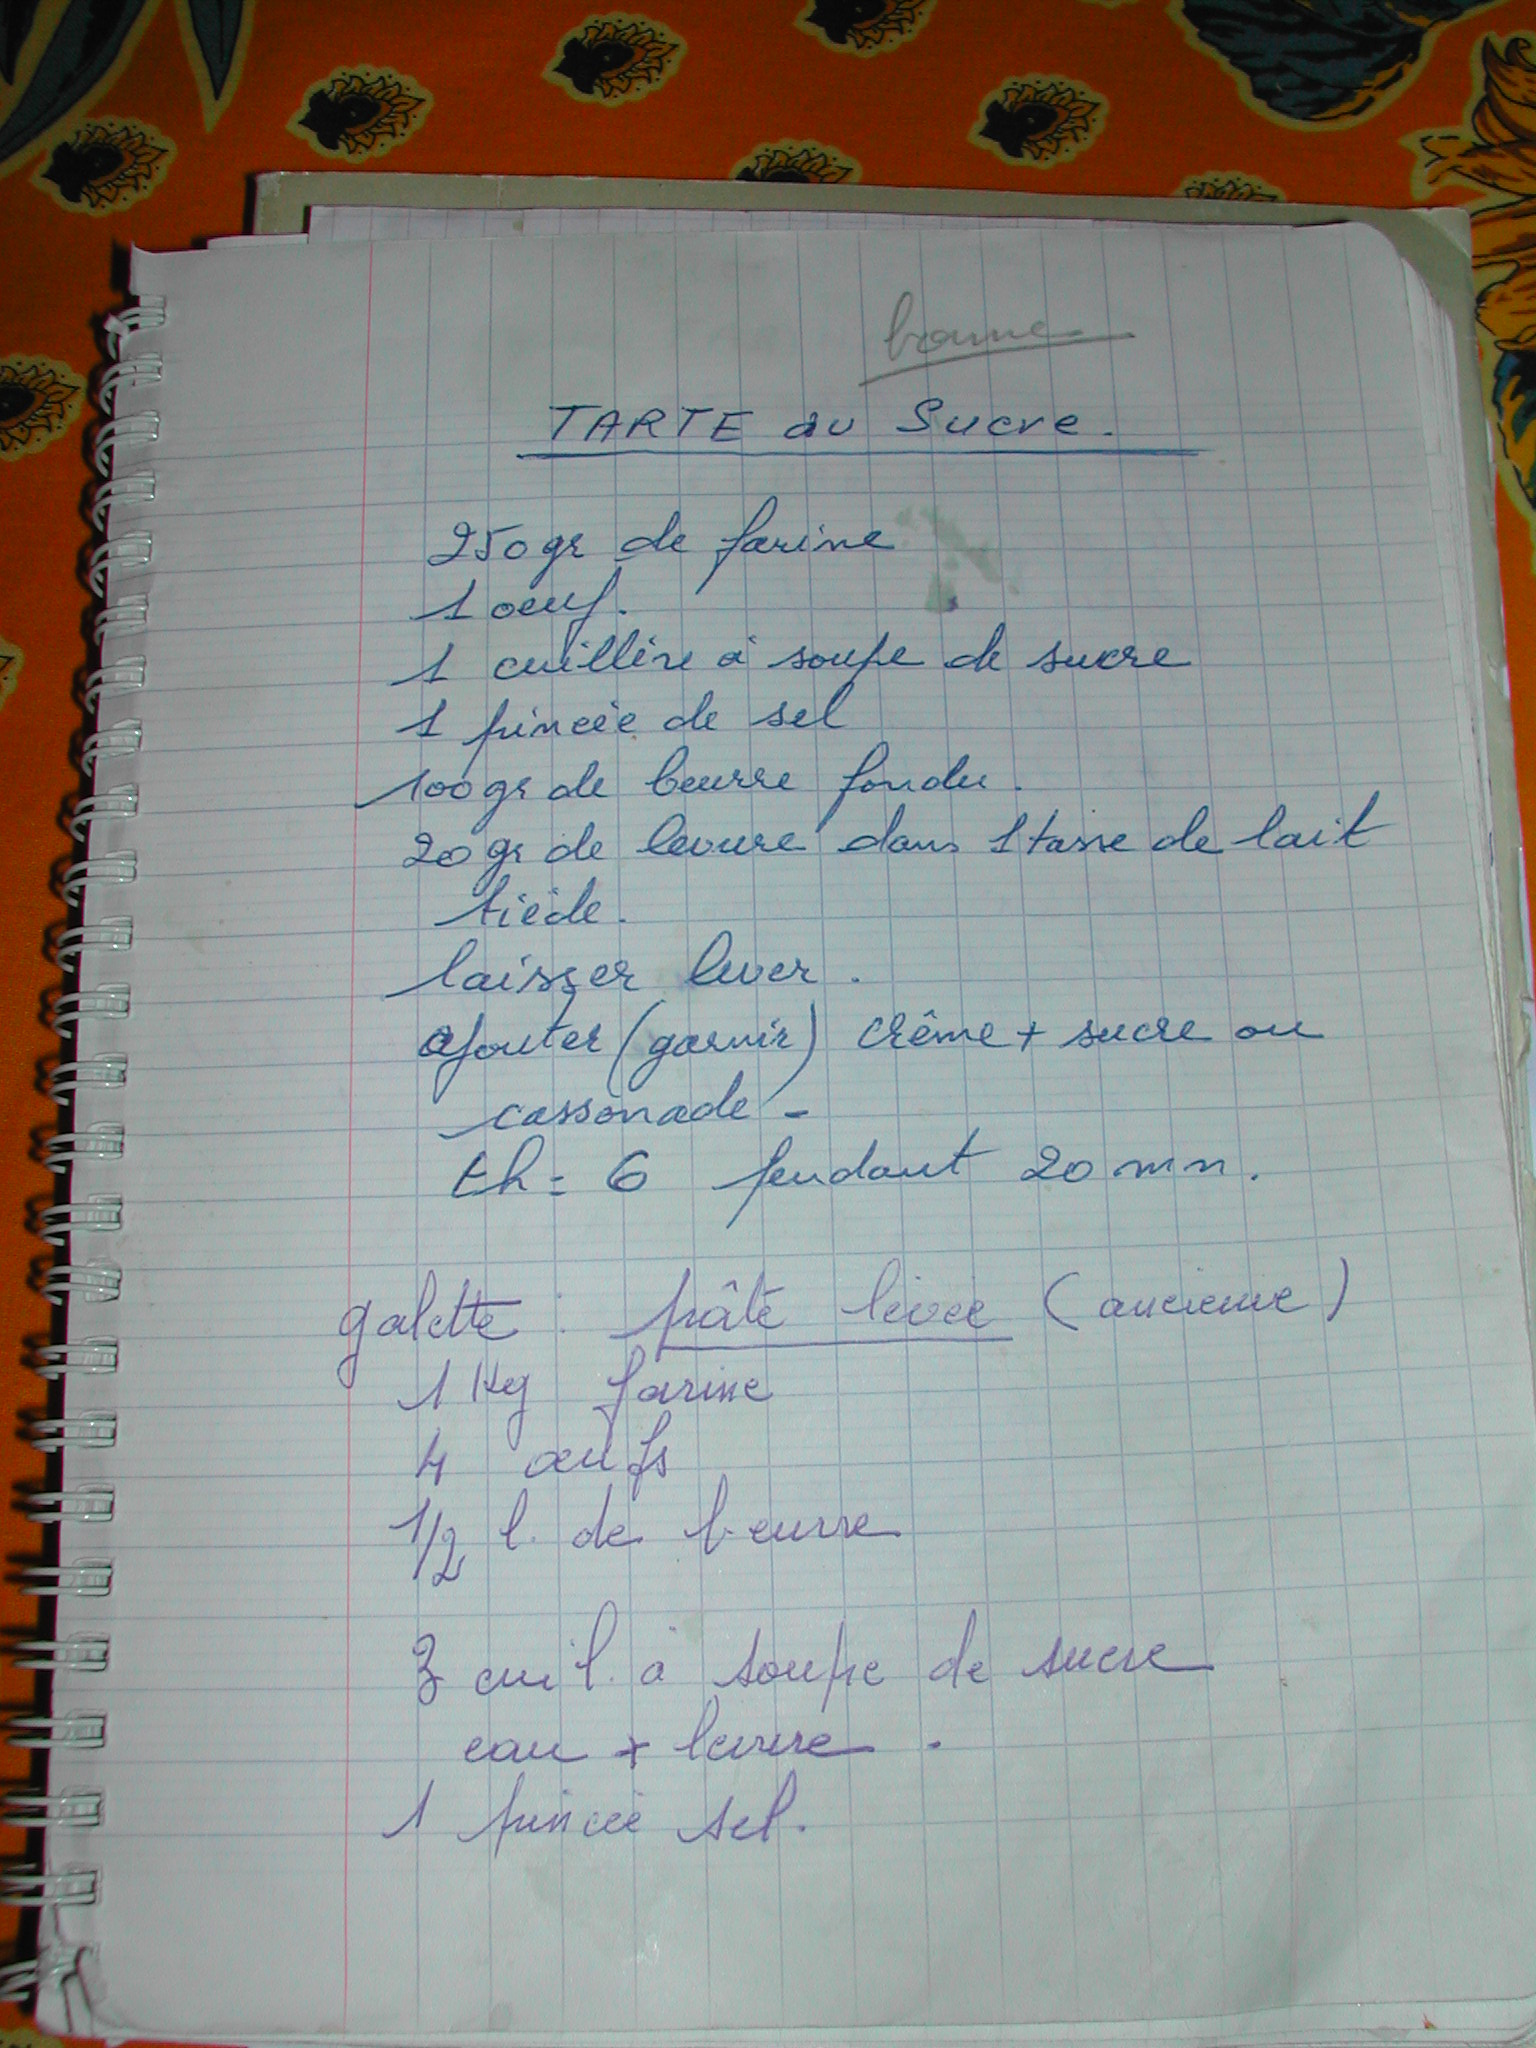 bonne
TARTE au Sucre.
250gr de farine
1 oeuf.
1 cuillère à soupe de sucre
1 pincée de sel
100gr de beurre fondu.
20gr de levure dans 1 tasse de lait
tiède.
laisser lever.
ajouter (garnir) crême + sucre ou
cassonade -
th = 6 pendant 20 mn.
galette : pâte levée (ancienne)
1 Kg farine
4 œufs
1/2 l. de beurre
3 cuil. à soupe de sucre
eau + levure .
1 pincée sel.